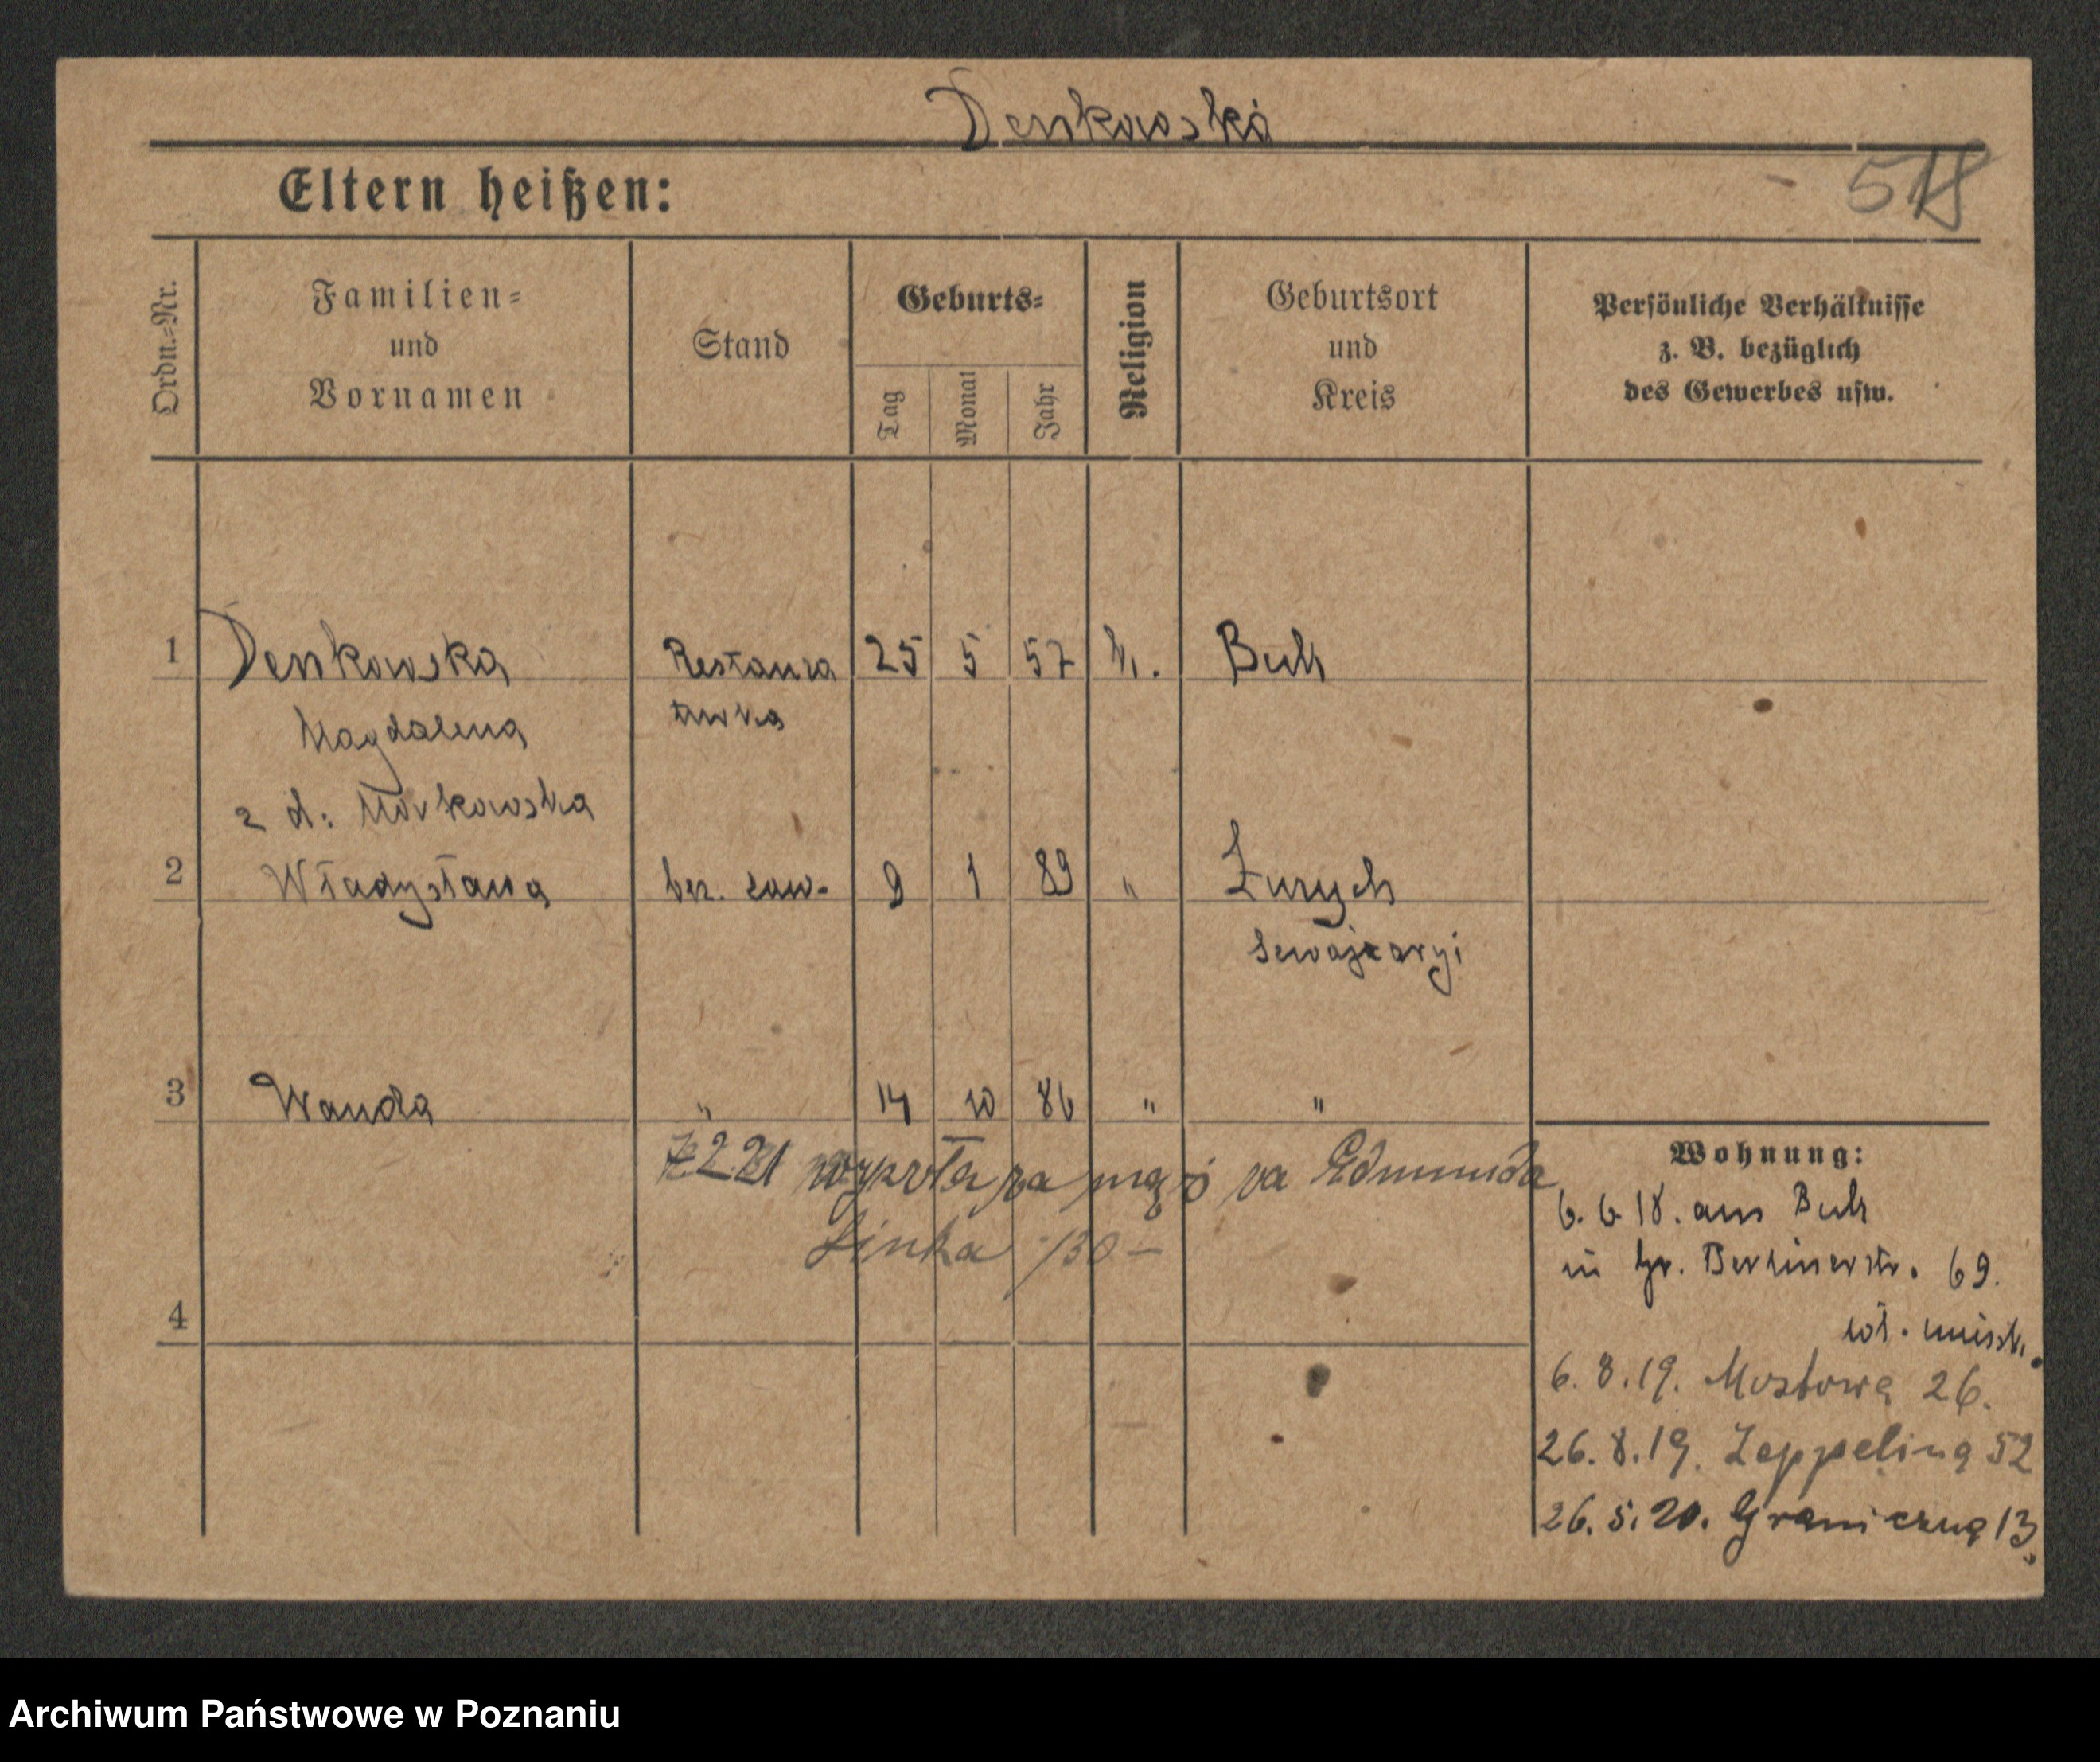 Denkowska
Eltern heißen:
518
Ordn.=Nr.
Familien=
und
Vornamen
Stand
Geburts=
Tag
Monat
Jahr
Religion
Geburtsort
und
Kreis
Persönliche Verhältnisse
z. B. bezüglich
des Gewerbes usw.
1 Denkowska Restaura 25 5 57 k. Buk
Magdalena torka
z d. Norkowska
2 Władysława bez. zaw. 9 1 89 " Zurych
Szwajcaryi
3 Wanda " 14 10 86 " "
wyszła za mąż za Edmunda
Linka /30 -
4
Wohnung:
6. 6 18. aus Buk
in Gr. Berlinerstr. 69.
6. 8. 19. Mostowa 26.
26. 8. 19. Zeppelina 52
26. 5. 20. Graniczna 13.
Archiwum Państwowe w Poznaniu